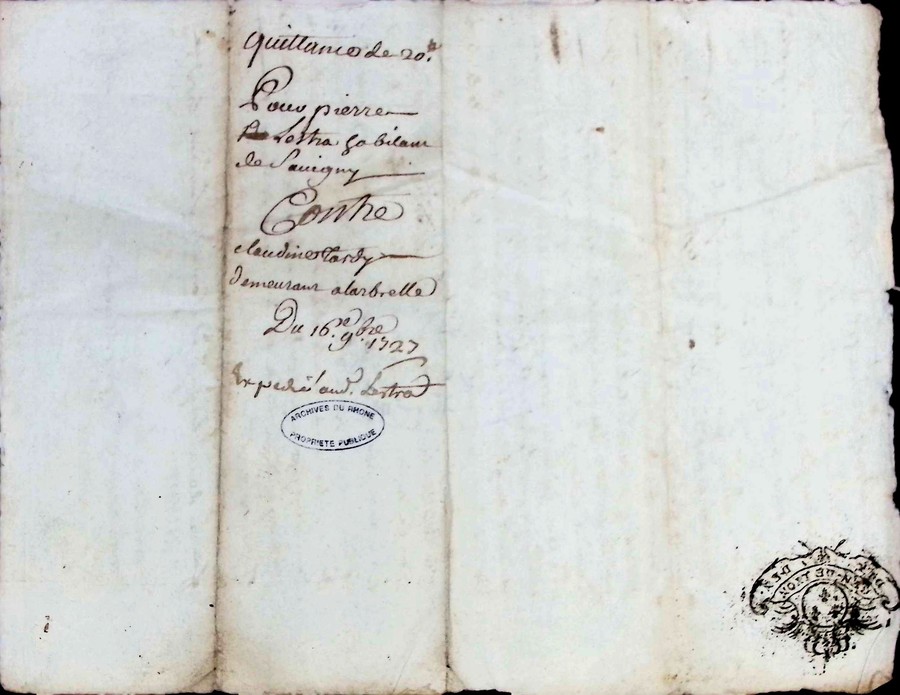 quittance de 20.#
Pour pierre
Lestra habitant
de Savigny
Contre
claudine tardy
demeurant alarbrelle
Du 16.e 9.bre 1727
Expedié aud. Lestra
ARCHIVES DU RHONE
PROPRIETE PUBLIQUE